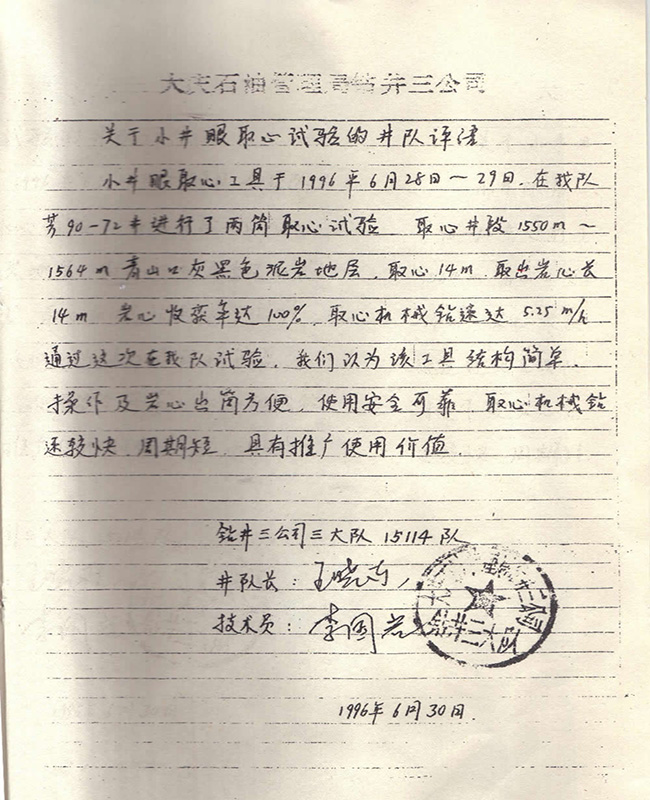 大庆石油管理局钻井三公司
关于小井眼取心试验的井队评语
小井眼取心工具于1996年6月28日~29日.在我队
芳90-72井进行了两筒取心试验 取心井段1550m~
1564m青山口灰黑色泥岩地层.取心14m.取出岩心长
14m 岩心收获率达100%.取心机械钻速达5.25m/h
通过这次在我队试验.我们认为该工具结构简单.
操作及岩心出筒方便.使用安全可靠.取心机械钻
速较快.周期短.具有推广使用价值.
钻井三公司三大队15114队
井队长:王晓
技术员:李国
1996年6月30日.